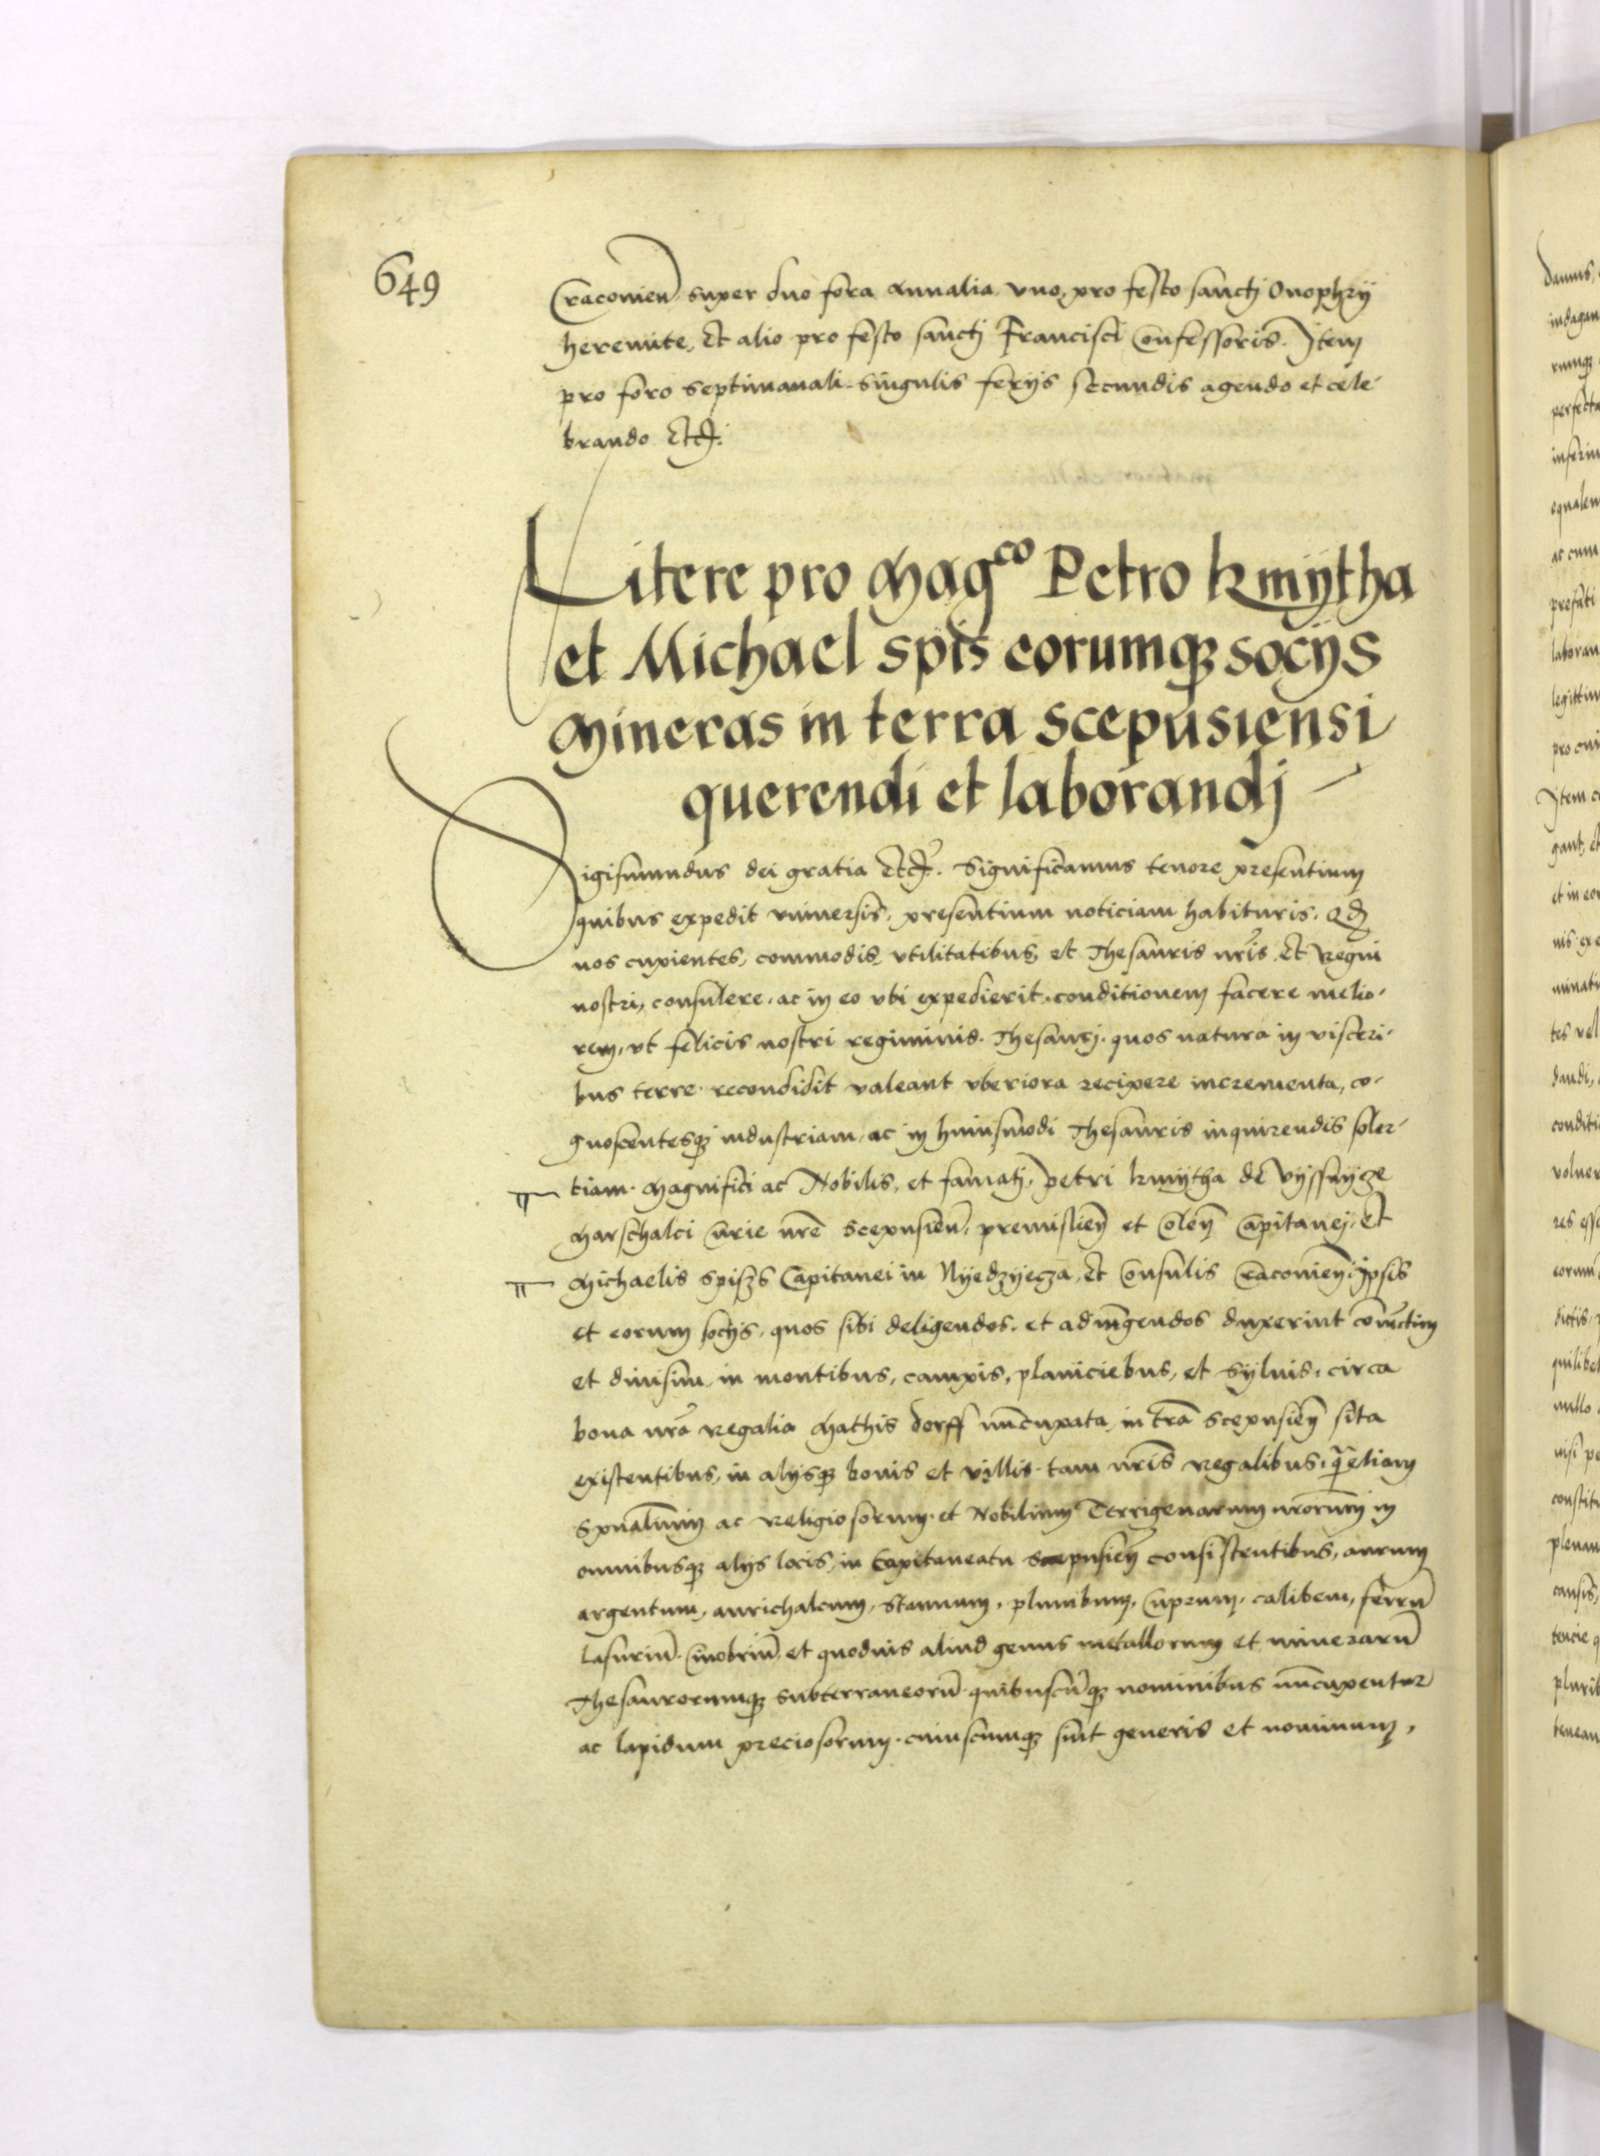 649
Cracovien̄ super duo fora Annalia vno, pro festo sanctj Onophrÿ
heremite, Et alio pro festo sanctj Francisci Confessoris. Jtem
pro foro septimanali singulis ferijs secundis agendo et cele-
brando Etc̄.
Litere pro Magᶜᵒ Petro kmÿtha
et Michael spis eorumqꝫ socÿs
Mineras in terra scepusiensi
querendi et laborandj
Sigismundus dei gratia Etc̄. Significamus tenore presentium
quibus expedit vniuersis, presentium noticiam habituris. Qd̄
nos cupientes, commodis, vtilitatibus, et Thesauris nr̄is, Et Regni
nostri, consulere, ac in eo vbi expedierit, conditionem facere melio-
rem, vt felicis nostri regiminis. Thesaurj. quos natura in visceri-
bus terre recondidit valeant vberiora recipere incrementa, co-
gnoscentesqꝫ industriam, ac in huiusmodi Thesauris inquirendis soler-
tiam. Magnifici ac Nobilis, et famatj, Petri kmÿtha de Vÿssnÿcze
Marschalci Curie nr̄e scepusien̄, premislien̄ et Colen̄ Capitanej, Et
Michaelis spiszs Capitanei in Nÿedzÿcza, Et Consulis Cracovien̄, Jpsis
et eorum socÿs, quos sibi deligendos, et adiūgendos duxerint coniūctim
et diuisim in montibus, campis, planiciebus, et sÿluis, circa
bona nr̄a Regalia Mathis dorff nūcupata, in tr̄a scepusien̄ sita
existentibus, in alÿsqꝫ bonis et villis tam nr̄is Regalibus, q̄ etiam
Spūalium ac Religiosorum, et Nobilium Terrigenarum nr̄orum in
omnibusqꝫ alÿs locis, in Capitaneatu scepusien̄ consistentibus, aurum
argentum, aurichalcum, stannum, plumbum, Cuprum, calibem, ferrū
Lasuriū, Cinobriū, et quoduis aliud genus metallorum et minerarū
Thesaurorumqꝫ subterraneorū, quibuscūqꝫ nominibus nūcupentur
ac lapidum preciosorum, cuiuscumqꝫ sint generis et nominum,